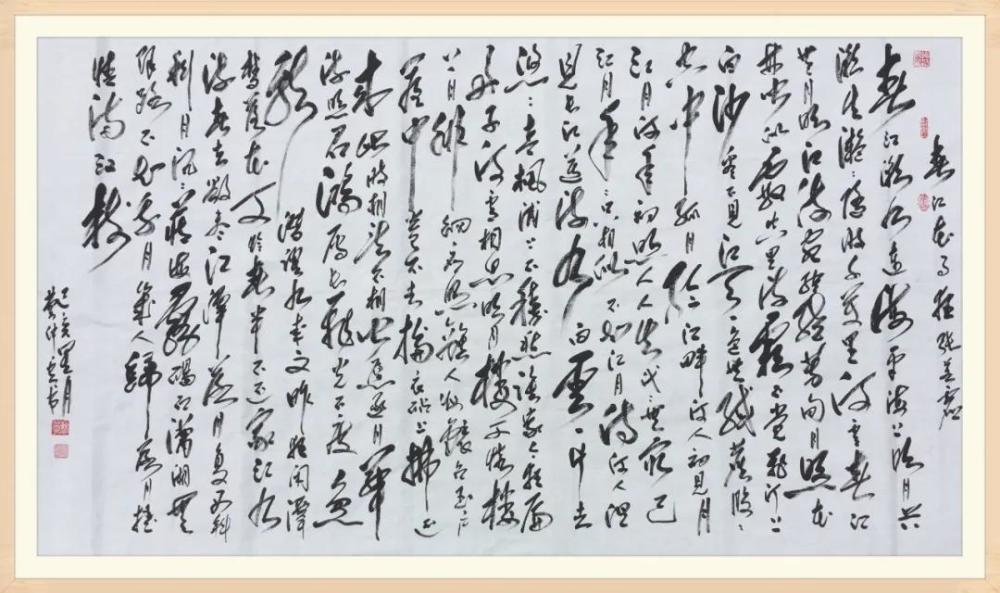 春江花月夜 张若虚
春江潮水连海平海上明月共
潮生滟滟随波千万里何处春江
无月明江流宛转绕芳甸月照花
林皆似霰空里流霜不觉飞汀上
白沙看不见江天一色无纤尘皎皎
空中孤月轮江畔何人初见月
江月何年初照人人生代代无穷已
江月年年只相似不知江月待何人但
见长江送流水白云一片去
悠悠青枫浦上不胜愁谁家今夜扁
舟子何处相思明月楼可怜楼
上月徘徊应照离人妆镜台玉户
帘中卷不去捣衣砧上拂还
来此时相望不相闻愿逐月华
流照君鸿雁长飞光不度鱼
龙潜跃水成文昨夜闲潭
梦落花可怜春半不还家江水
流春去欲尽江潭落月复西斜
斜月沉沉藏海雾碣石潇湘无
限路不知乘月几人归落月摇
情满江树
己亥夏月